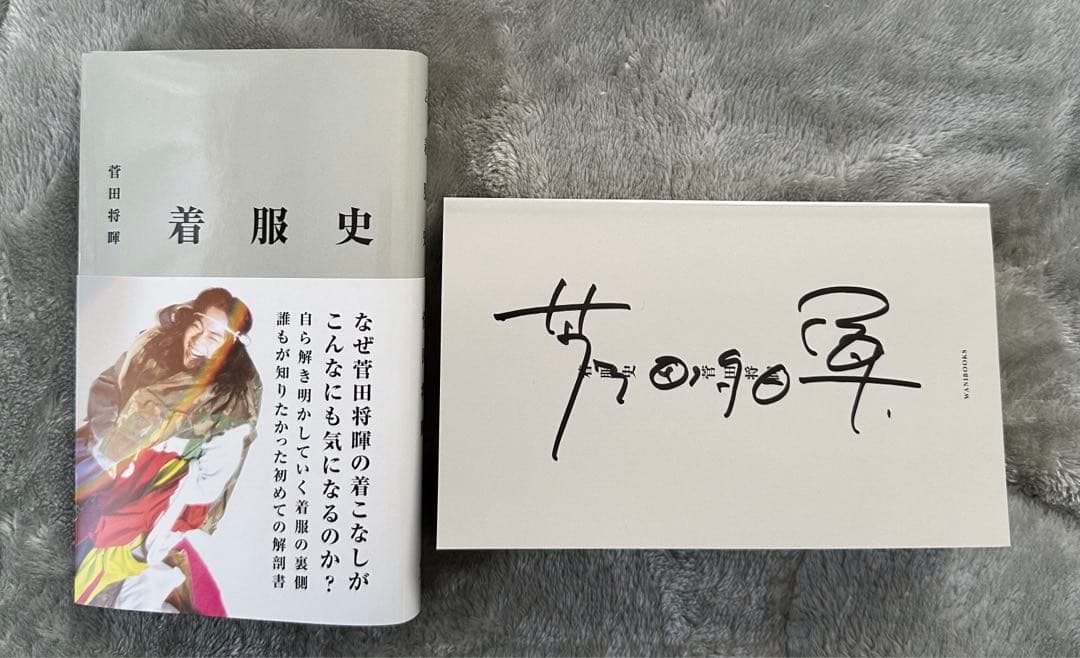 菅田将暉
着服史
なぜ菅田将暉の着こなしが
こんなにも気になるのか?
自ら解き明かしていく着服の裏側
誰もが知りたかった初めての解剖書
着服史
菅田将暉
WANIBOOKS